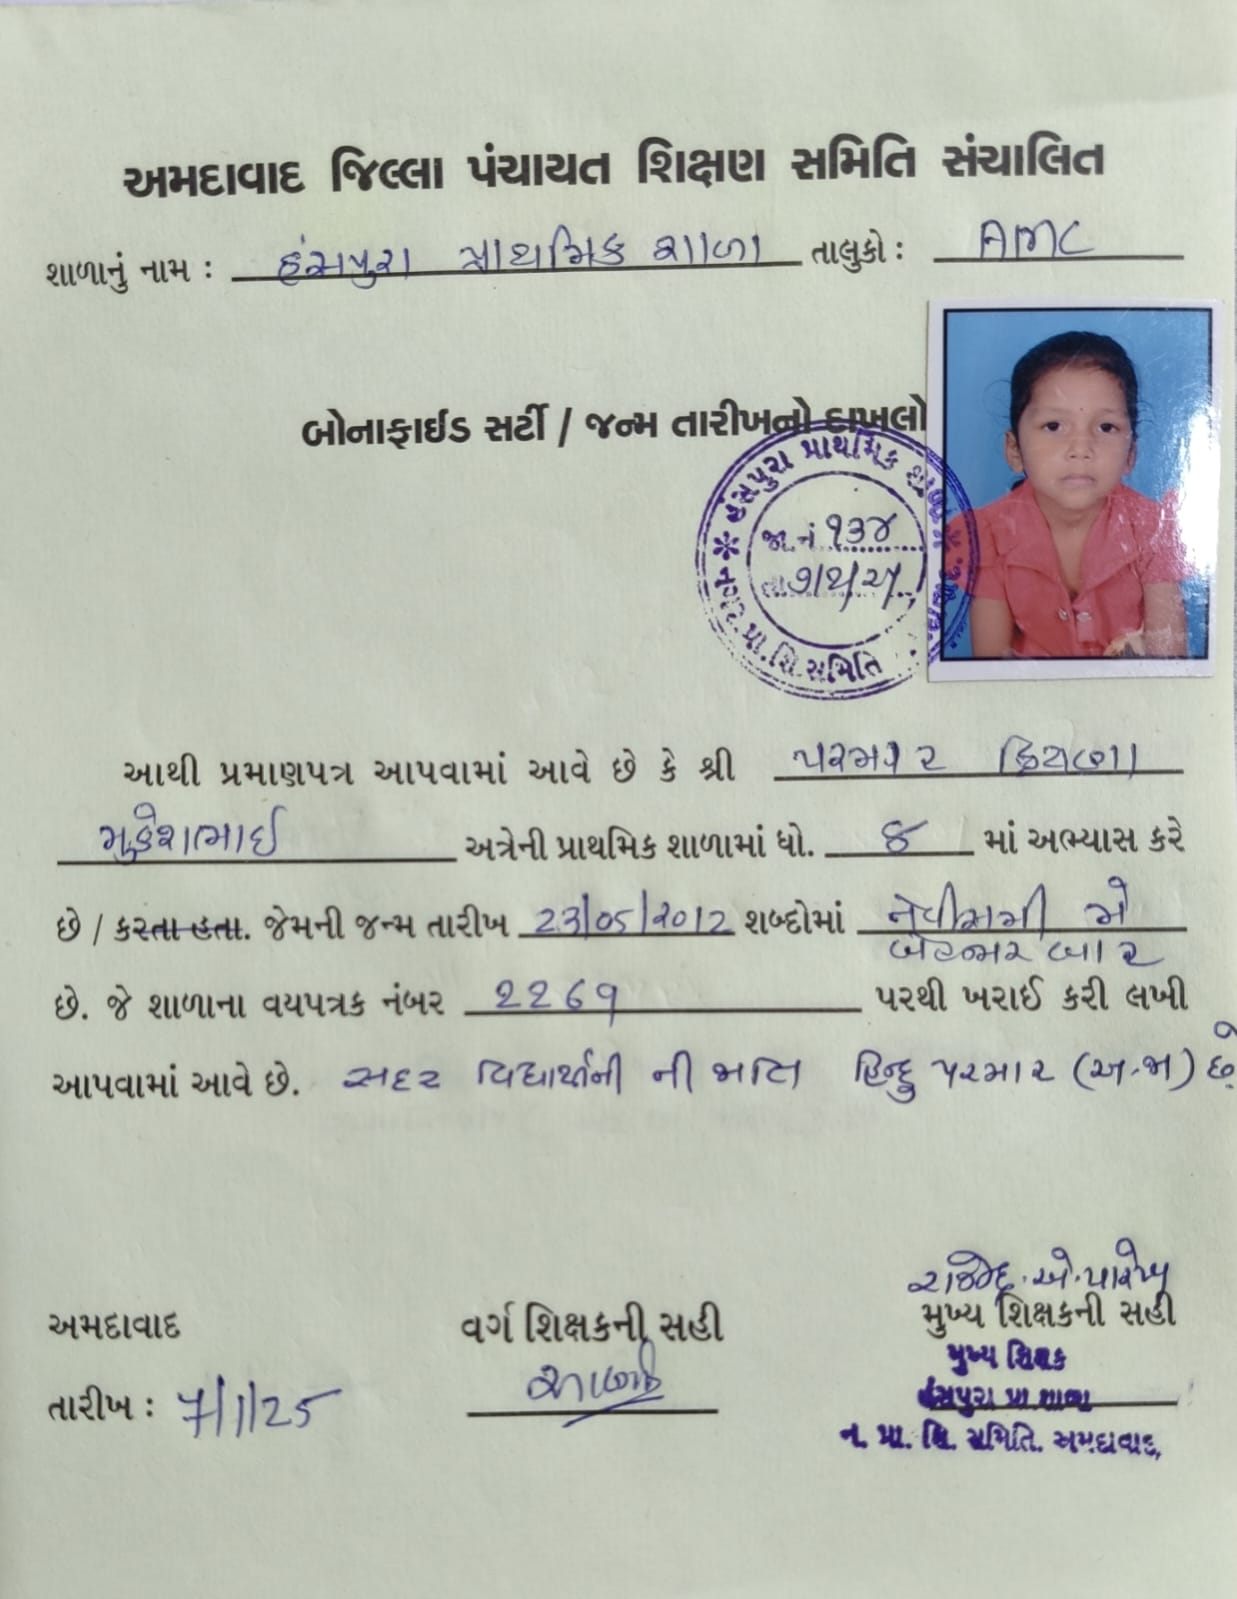 અમદાવાદ જિલ્લા પંચાયત શિક્ષણ સમિતિ સંચાલિત
શાળાનું નામ : હંસપુરા પ્રાથમિક શાળા તાલુકો : AMC
બોનાફાઈડ સર્ટી / જન્મ તારીખનો દાખલો
હંસપુરા પ્રાથમિક શાળા
જા.નં ૧૩૪
તા.
પ્રા.શિ.સમિતિ
આથી પ્રમાણપત્ર આપવામાં આવે છે કે શ્રી પરમાર
મુકેશભાઈ અત્રેની પ્રાથમિક શાળામાં ધો. ૪ માં અભ્યાસ કરે
છે / કરતા હતા. જેમની જન્મ તારીખ 23/05/2012 શબ્દોમાં ત્રેવીસમી મે
બેહજાર બાર
છે. જે શાળાના વયપત્રક નંબર ૨૨૬૧ પરથી ખરાઈ કરી લખી
આપવામાં આવે છે. સદર વિદ્યાર્થીની ની જાતિ હિન્દુ પરમાર (અ.જા) છે.
રાજેન્દ્ર. એ. પારેખ
અમદાવાદ વર્ગ શિક્ષકની સહી મુખ્ય શિક્ષકની સહી
મુખ્ય શિક્ષક
તારીખ : 7/1/25 હંસપુરા પ્રા શાળા
ન. પ્રા. શિ. સમિતિ. અમદાવાદ.